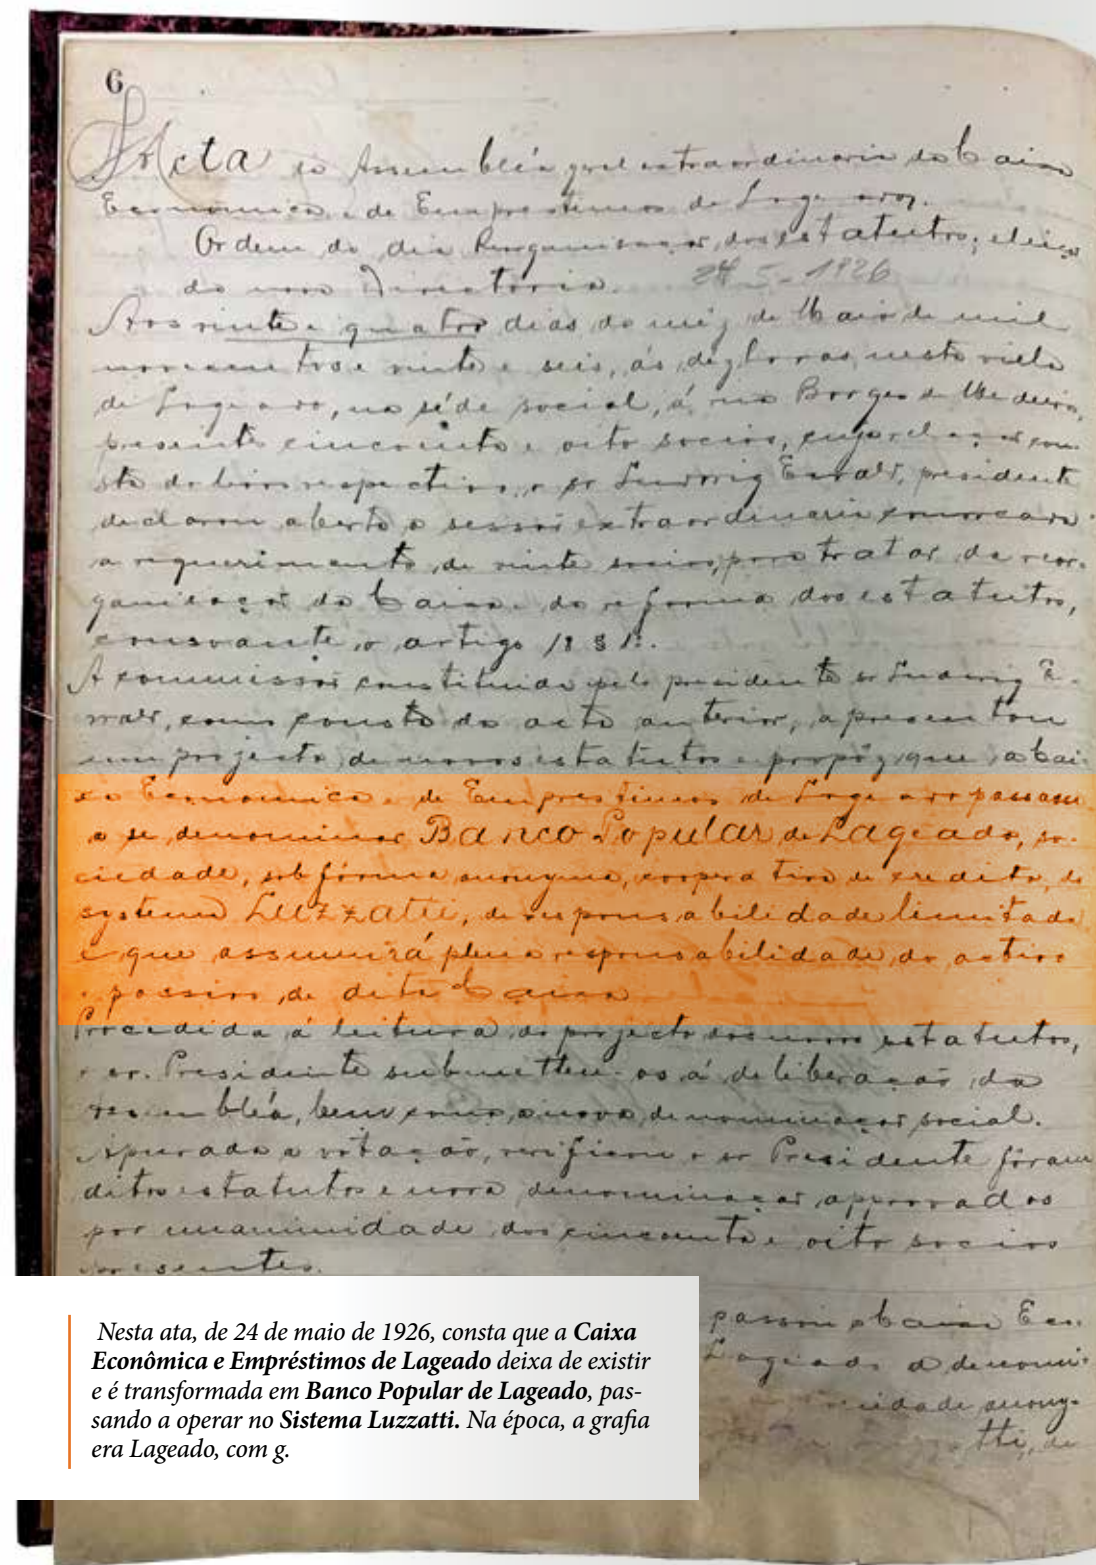 6
Acta da Assembléa geral extraordinaria da Caixa
Economica e de Emprestimos de Lageado.
Ordem do dia Reorganisação dos estatutos; eleição
da nova Directoria. 24-5-1926
Aos vinte e quatro dias do mez de Maio de mil
novecentos e vinte e seis, ás dez horas, nesta villa
de Lageado, na séde social, á rua Borges de Medeiros,
presente cincoenta e oito socios, cuja relação con-
sta do livro respectivo, o sr Ludwig Ewald, presidente
declarou aberta a sessão extraordinaria convocada
a requerimento de vinte socios, para tratar da reor-
ganisação da Caixa e da reforma dos estatutos,
consoante o artigo
A commissão constituida pelo presidente sr Ludwig E-
wald, como consta da acta anterior, apresentou
um projecto de novos estatutos e propôz que a Cai-
xa Economica e de Emprestimos de Lageado passasse
a se denominar Banco Popular de Lageado, so-
ciedade, sob fórma anonyma, cooperativa de credito, do
systema Luzzatti, de responsabilidade limitada
e que assumirá plena responsabilidade do activo
e passivo da dita Caixa
Procedida á leitura do projecto dos novos estatutos,
o sr. Presidente submetteu-os á deliberação da
assembléa, bem como a nova denominação social.
Apurada a votação, verificou o sr Presidente fôram
ditos estatutos e nova denominação approvados
por unanimidade dos cincoenta e oito socios
presentes.
passou a Caixa Eco-
Lageado a denomi-
ciedade anony-
tti, de
Nesta ata, de 24 de maio de 1926, consta que a Caixa
Econômica e Empréstimos de Lageado deixa de existir
e é transformada em Banco Popular de Lageado, pas-
sando a operar no Sistema Luzzatti. Na época, a grafia
era Lageado, com g.